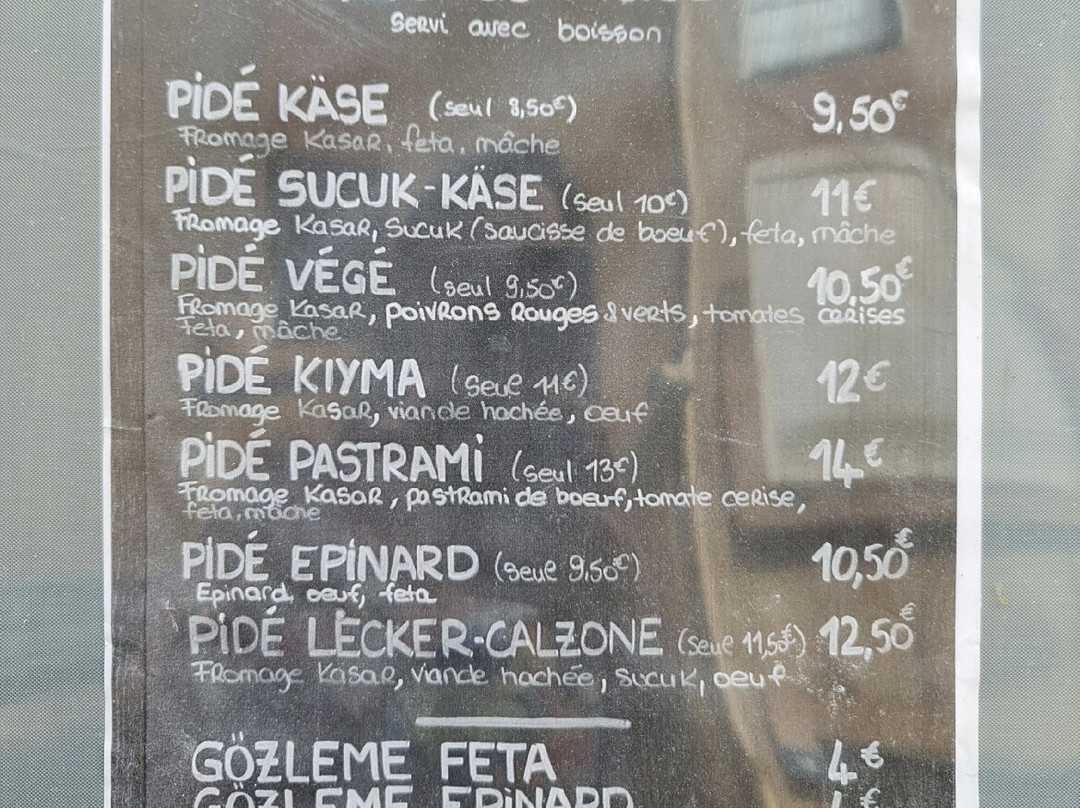 Servi avec boisson
PiDÉ KÄSE (seul 8,50€) 9,50€
Fromage Kasar, feta, mâche
PiDÉ SUCUK-KÄSE (seul 10€) 11€
Fromage Kasar, Sucuk (saucisse de boeuf), feta, mâche
PiDÉ VÉGÉ (seul 9,50€) 10,50€
Fromage Kasar, poivrons Rouges & verts, tomates cerises
feta, mâche
PiDÉ KIYMA (seul 11€) 12€
Fromage Kasar, viande hachée, oeuf
PiDÉ PASTRAMi (seul 13€) 14€
Fromage Kasar, pastrami de boeuf, tomate cerise,
feta, mâche
PiDÉ EPiNARD (seul 9,50€) 10,50€
Epinard, oeuf, feta
PiDÉ LECKER-CALZONE (seul 11,50€) 12,50€
Fromage Kasar, viande hachée, sucuk, oeuf
GÖZLEME FETA 4€
GÖZLEME EPiNARD